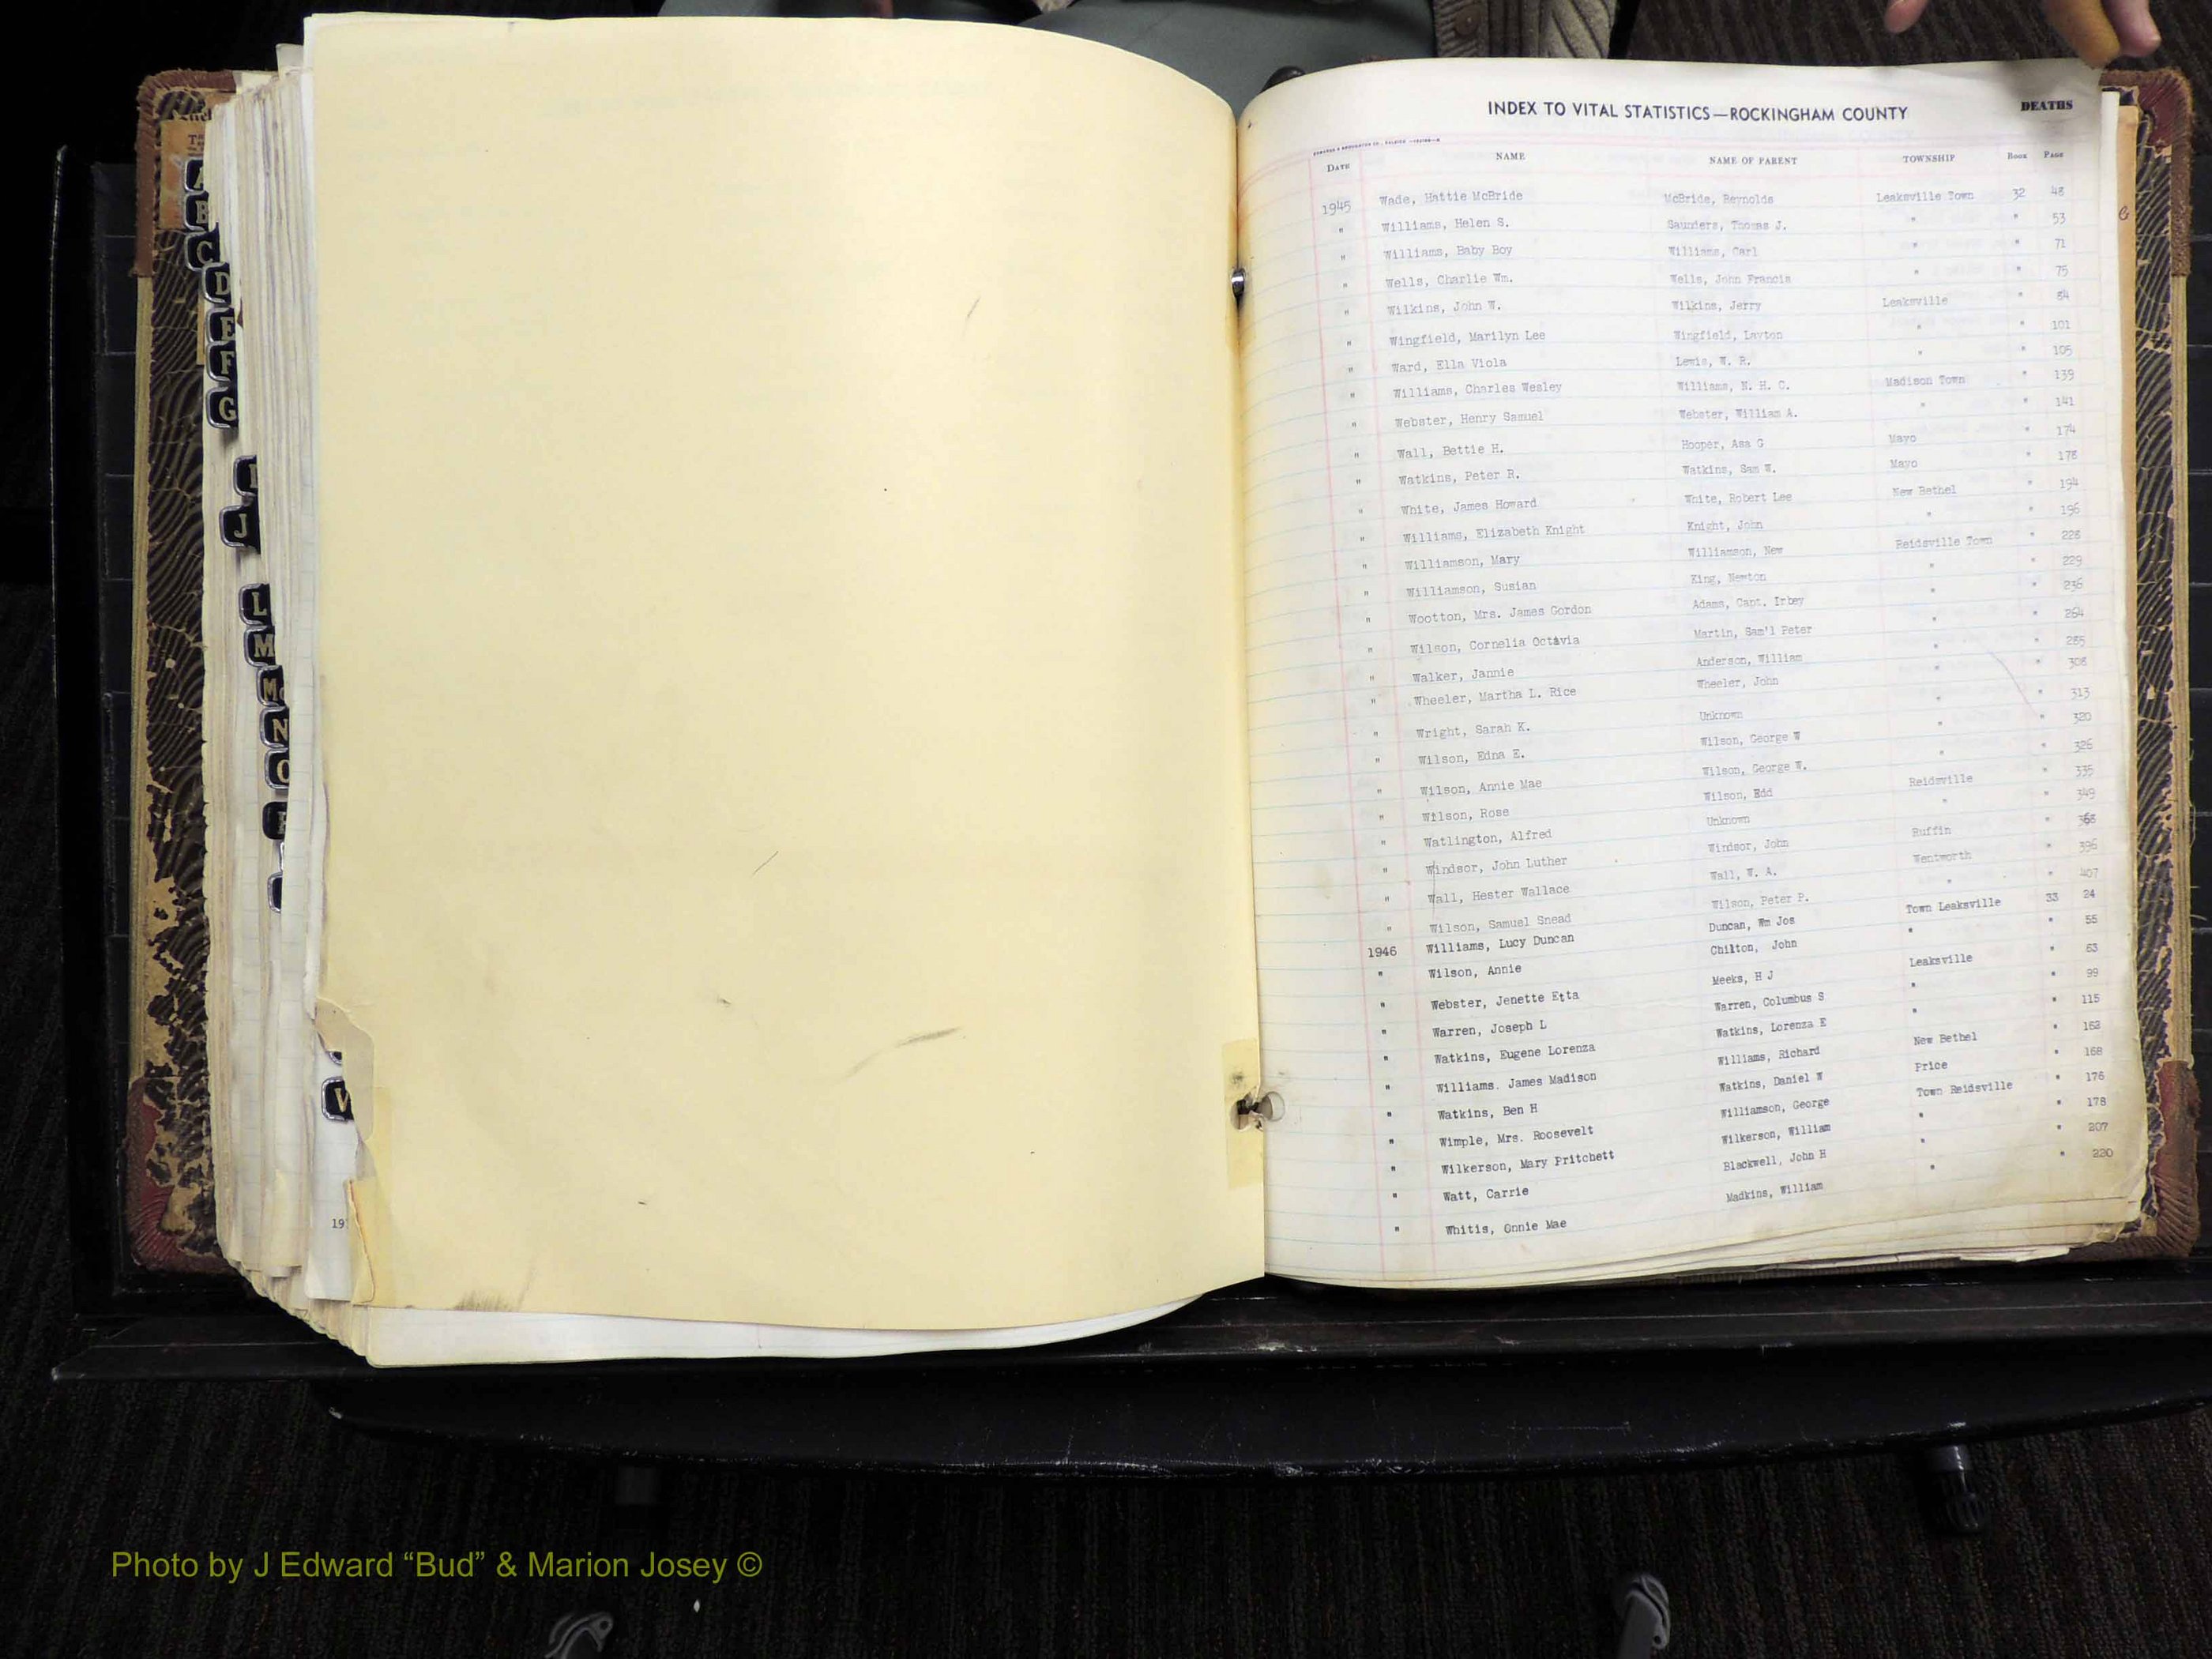 INDEX TO VITAL STATISTICS—ROCKINGHAM COUNTY DEATHS
DATE NAME NAME OF PARENT TOWNSHIP Book Page
1945 Wade, Hattie McBride McBride, Reynolds Leaksville Town 32 48
" Williams, Helen S. Saunders, Thomas J. " " 53
" Williams, Baby Boy Williams, Carl " " 71
" Wells, Charlie Wm. Wells, John Francis " " 75
" Wilkins, John W. Wilkins, Jerry Leaksville " 84
" Wingfield, Marilyn Lee Wingfield, Layton " " 101
" Ward, Ella Viola Lewis, W. R. " " 105
" Williams, Charles Wesley Williams, N. H. C. Madison Town " 139
" Webster, Henry Samuel Webster, William A. " " 141
" Wall, Bettie H. Hooper, Asa G Mayo " 174
" Watkins, Peter R. Watkins, Sam W. Mayo " 178
" White, James Howard White, Robert Lee New Bethel " 194
" Williams, Elizabeth Knight Knight, John " " 196
" Williamson, Mary Williamson, New Reidsville Town " 228
" Williamson, Susian King, Newton " " 229
" Wootton, Mrs. James Gordon Adams, Capt. Irbey " " 236
" Wilson, Cornelia Octavia Martin, Sam'l Peter " " 264
" Walker, Jannie Anderson, William " " 285
" Wheeler, Martha L. Rice Wheeler, John " " 308
" Wright, Sarah K. Unknown " " 313
" Wilson, Edna E. Wilson, George W " " 320
" Wilson, Annie Mae Wilson, George W. " " 326
" Wilson, Rose Wilson, Edd Reidsville " 335
" Watlington, Alfred Unknown " " 349
" Windsor, John Luther Windsor, John Ruffin " 368
" Wall, Hester Wallace Wall, W. A. Wentworth " 396
" Wilson, Samuel Snead Wilson, Peter P. " " 407
1946 Williams, Lucy Duncan Duncan, Wm Jos Town Leaksville 33 24
" Wilson, Annie Chilton, John " " 55
" Webster, Jenette Etta Meeks, H J Leaksville " 63
" Warren, Joseph L Warren, Columbus S " " 99
" Watkins, Eugene Lorenza Watkins, Lorenza E " " 115
" Williams. James Madison Williams, Richard New Bethel " 162
" Watkins, Ben H Watkins, Daniel W Price " 168
" Wimple, Mrs. Roosevelt Williamson, George Town Reidsville " 176
" Wilkerson, Mary Pritchett Wilkerson, William " " 178
" Watt, Carrie Blackwell, John H " " 207
" Whitis, Onnie Mae Madkins, William " " 220
A
B
C
D
E
F
G
I
J
L
M
Mc
N
O
W
19
Photo by J Edward “Bud” & Marion Josey ©